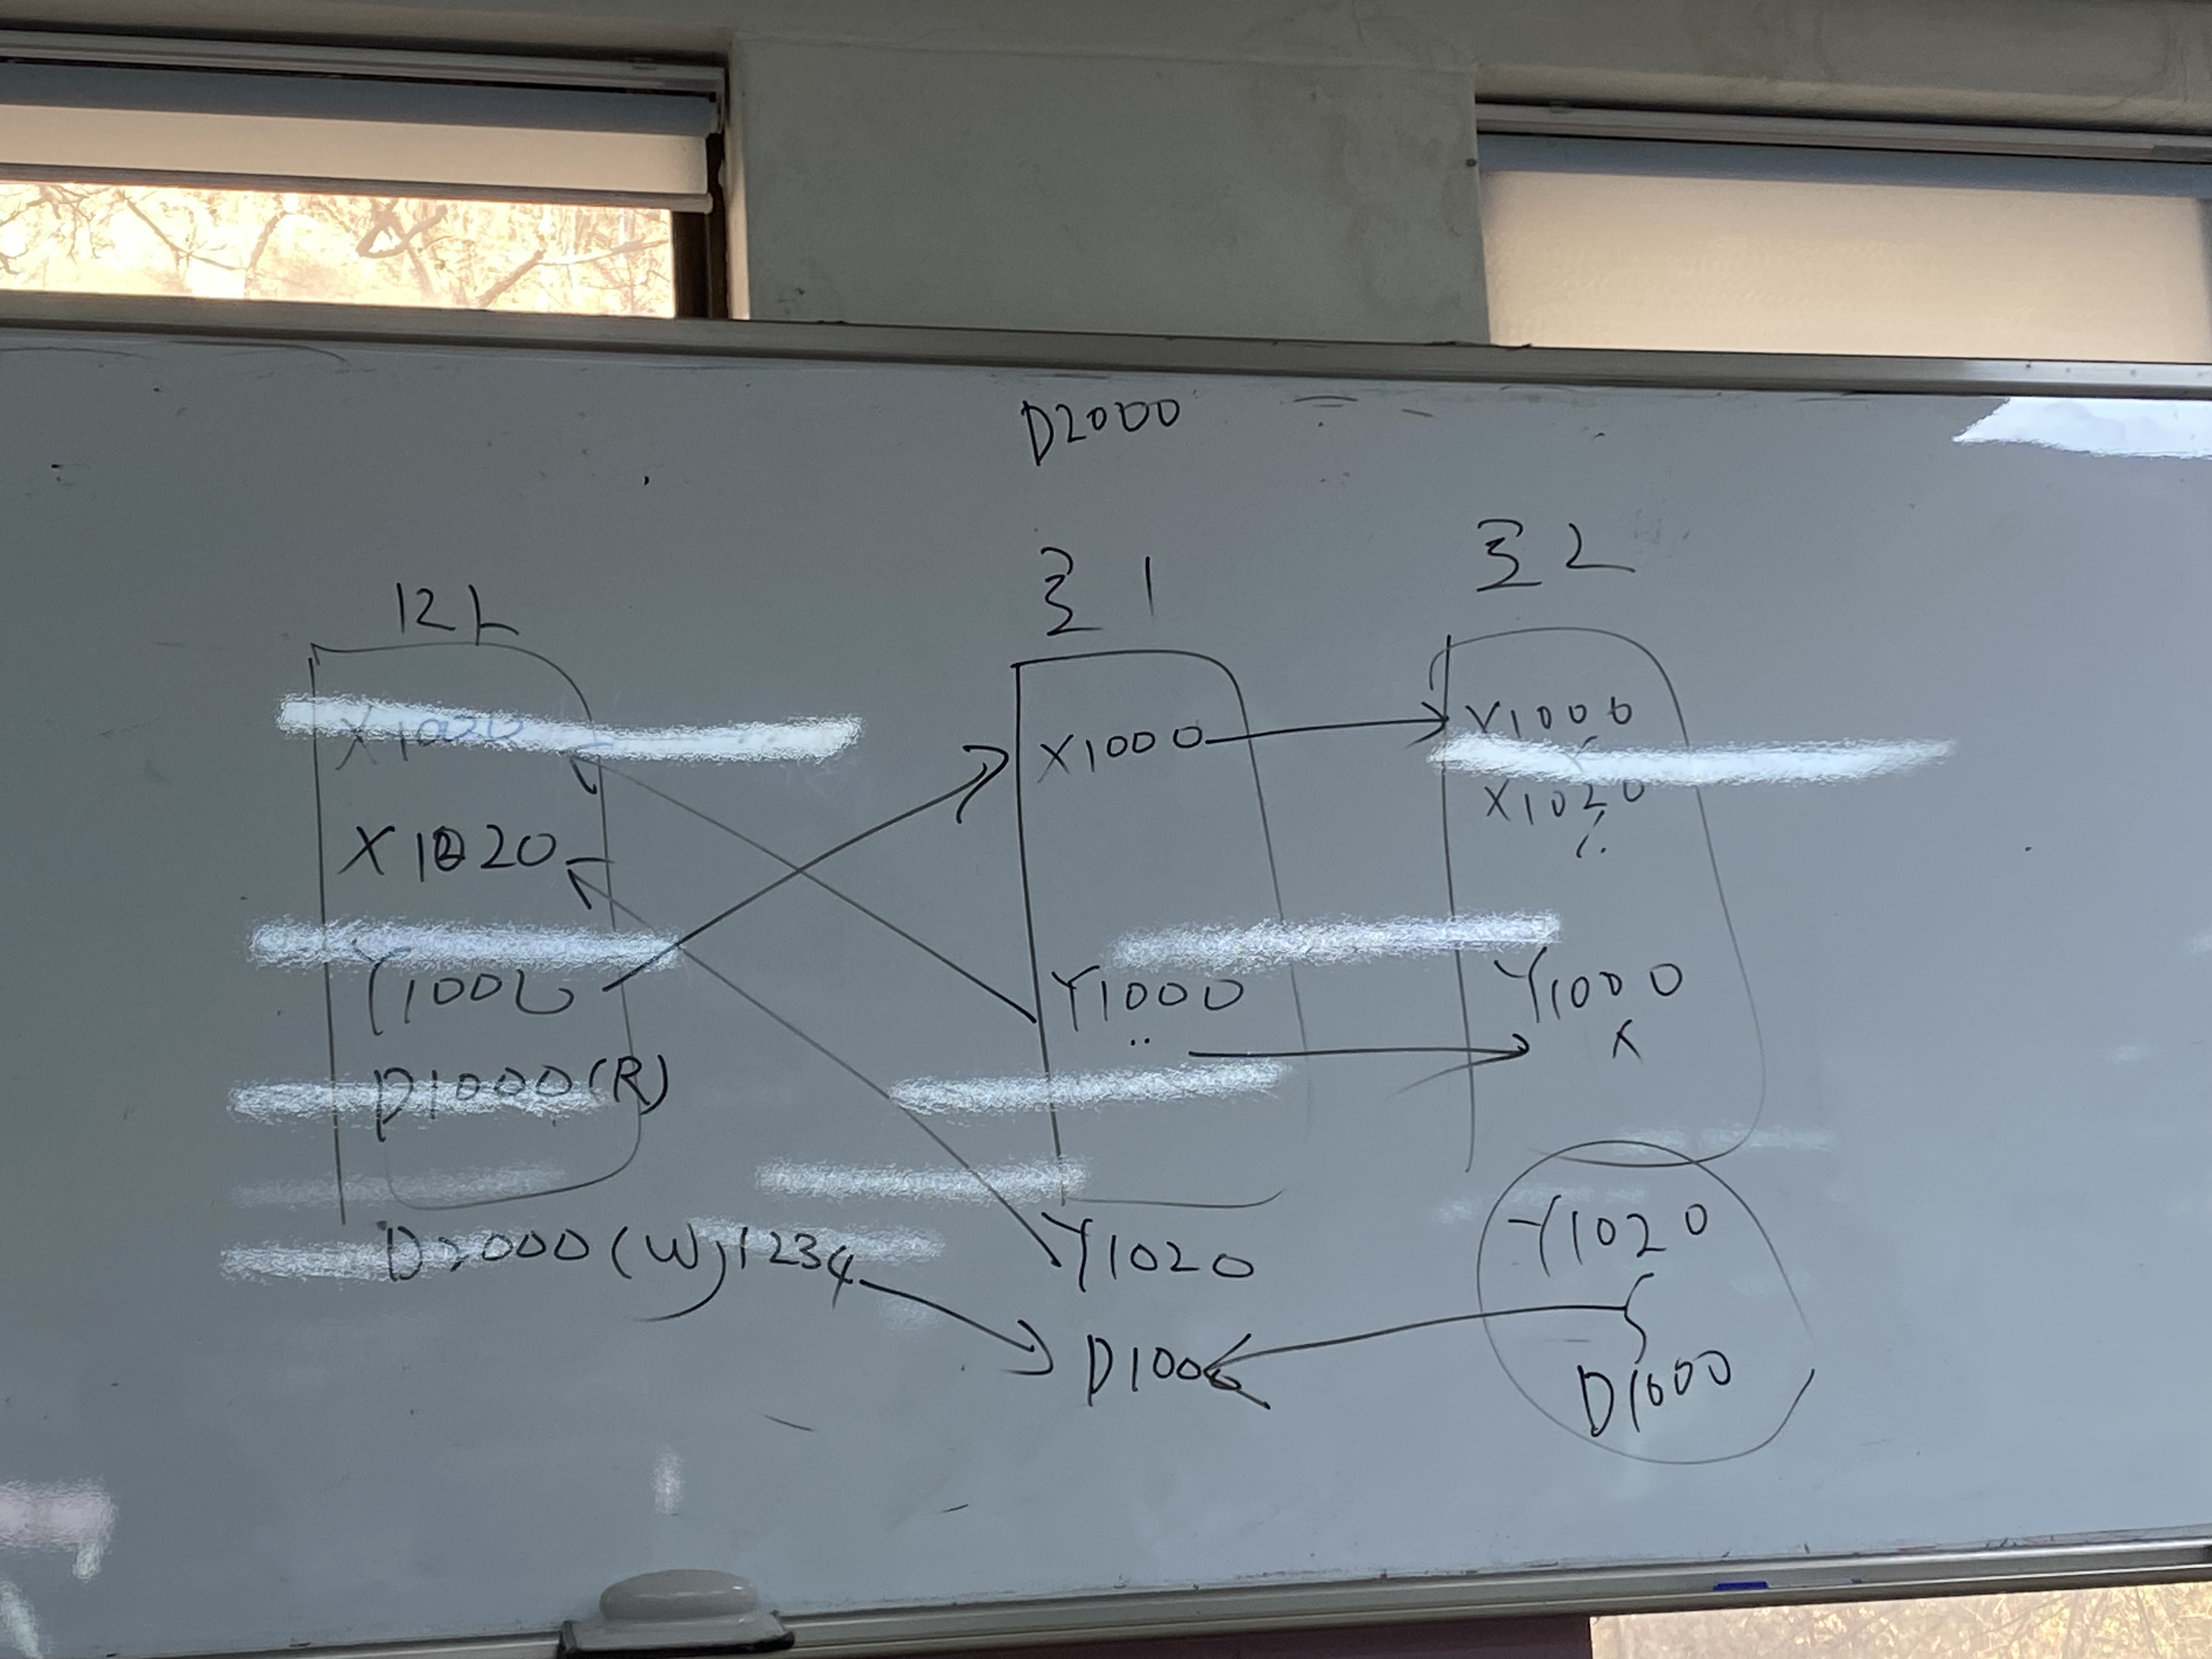 D2000
로 1
로 2
X1000
X1020
Y1000
D1000(R)
D2000(W)1234
X1000
Y1000
Y1020
D1000
X1000
X1020
Y1000
X
Y1020
D1000